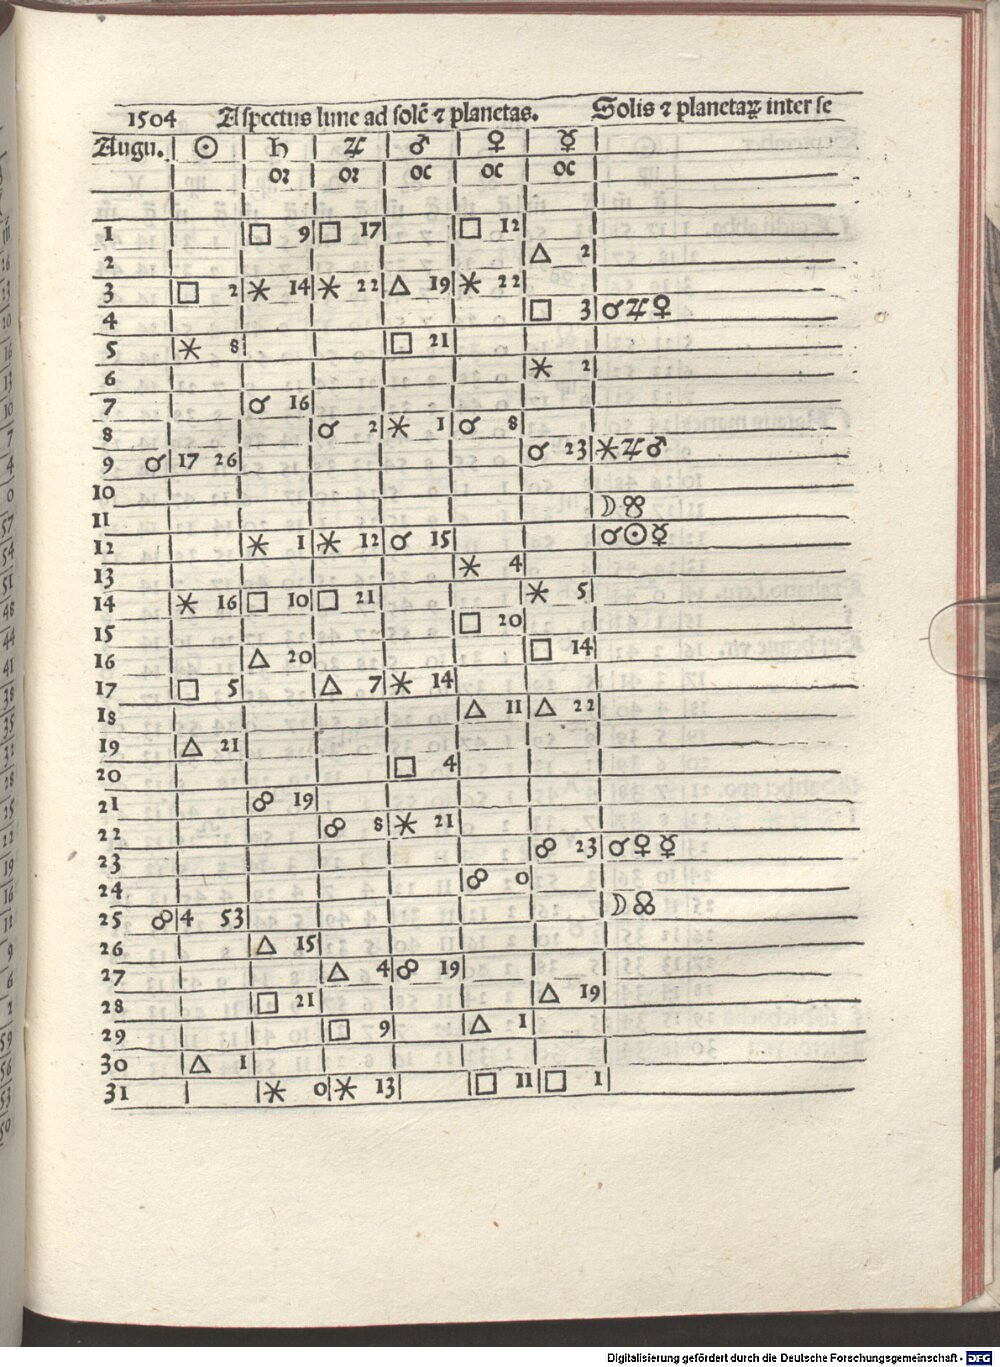 1504 Aspectus lune ad solē ⁊ planetas. Solis ⁊ planetaꝝ inter se
Augu. ☉ ♄ ♃ ♂ ♀ ☿
oꝛ oꝛ oc oc oc
1 □ 9 □ 17 □ 12
2 △ 2
3 □ 2 ⚹ 14 ⚹ 22 △ 19 ⚹ 22
4 □ 3 ☌♃♀
5 ⚹ 8 □ 21
6 ⚹ 2
7 ☌ 16
8 ☌ 2 ⚹ 1 ☌ 8
9 ☌ 17 26 ☌ 23 ⚹♃♂
10
11 ☽☋
12 ⚹ 1 ⚹ 12 ☌ 15 ☌☉☿
13 ⚹ 4
14 ⚹ 16 □ 10 □ 21 ⚹ 5
15 □ 20
16 △ 20 □ 14
17 □ 5 △ 7 ⚹ 14
18 △ 11 △ 22
19 △ 21
20 □ 4
21 ☍ 19
22 ☍ 8 ⚹ 21
23 ☍ 23 ☌♀☿
24 ☍ 0
25 ☍ 4 53 ☽☊
26 △ 15
27 △ 4 ☍ 19
28 □ 21 △ 19
29 □ 9 △ 1
30 △ 1
31 ⚹ 0 ⚹ 13 □ 11 □ 1
Digitalisierung gefördert durch die Deutsche Forschungsgemeinschaft - DFG